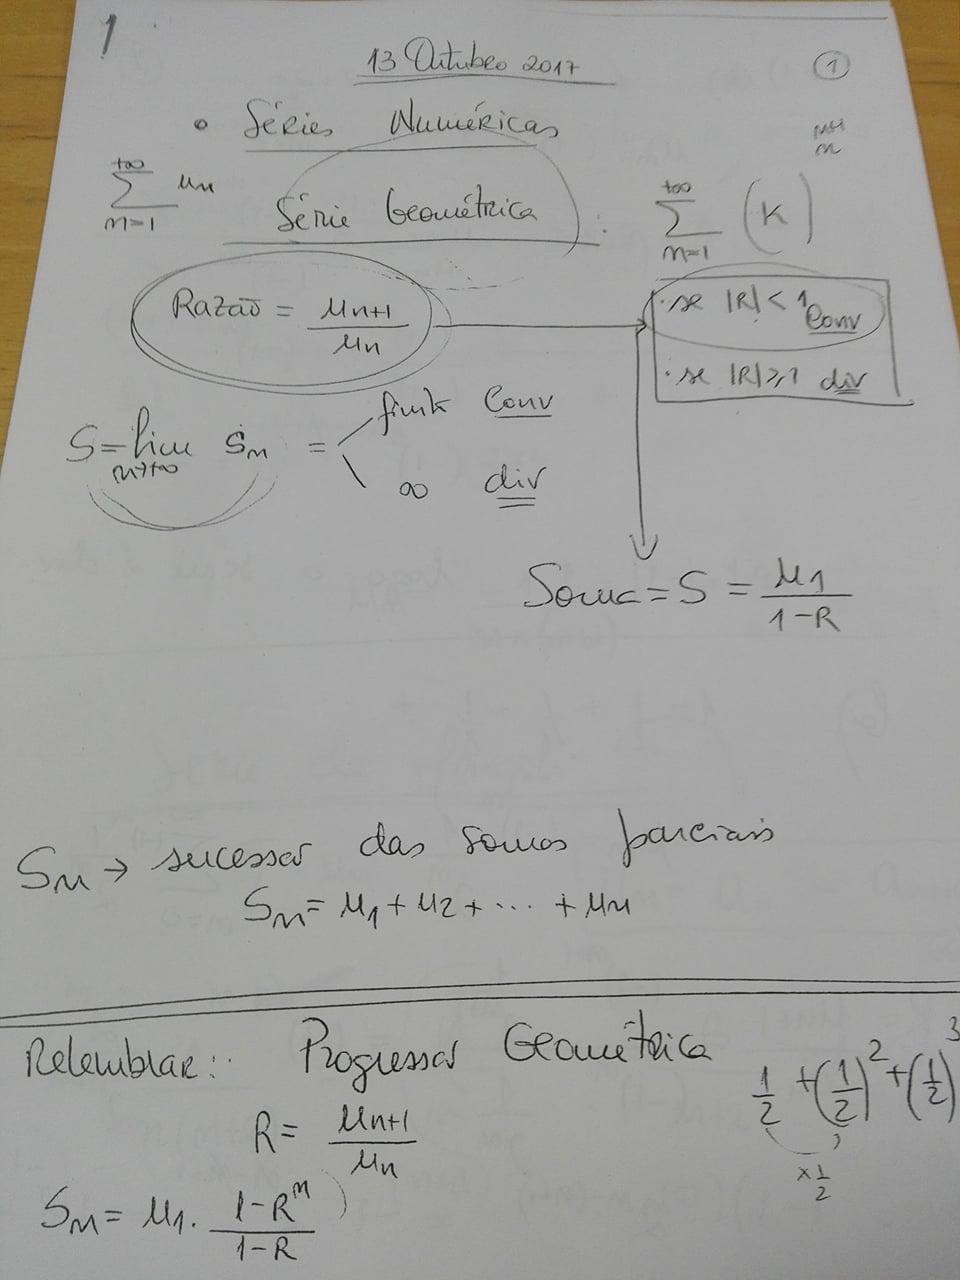 1
13 Outubro 2017 ①
• Séries Numéricas
n+1
n
+∞
∑ un
n=1
Série Geométrica :
+∞
∑ (K)
n=1
Razão = un+1 / un
· se |R| < 1 Conv
· se |R| ⩾ 1 div
S = lim Sn =
n→+∞
finita Conv
∞ div
Soma = S = u1 / 1-R
Sn → sucessão das somas parciais
Sn = u1 + u2 + ... + un
Relembrar: Progressão Geométrica
1/2 + (1/2)^2 + (1/2)^3
x 1/2
R = un+1 / un
Sn = u1 . 1-R^n / 1-R